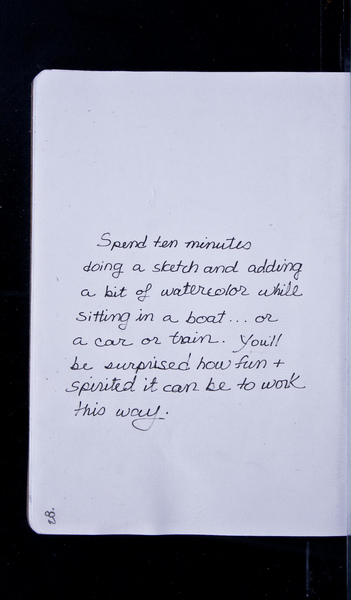 Spend ten minutes
doing a sketch and adding
a bit of watercolor while
sitting in a boat... or
a car or train. You'll
be surprised how fun +
spirited it can be to work
this way.
28.